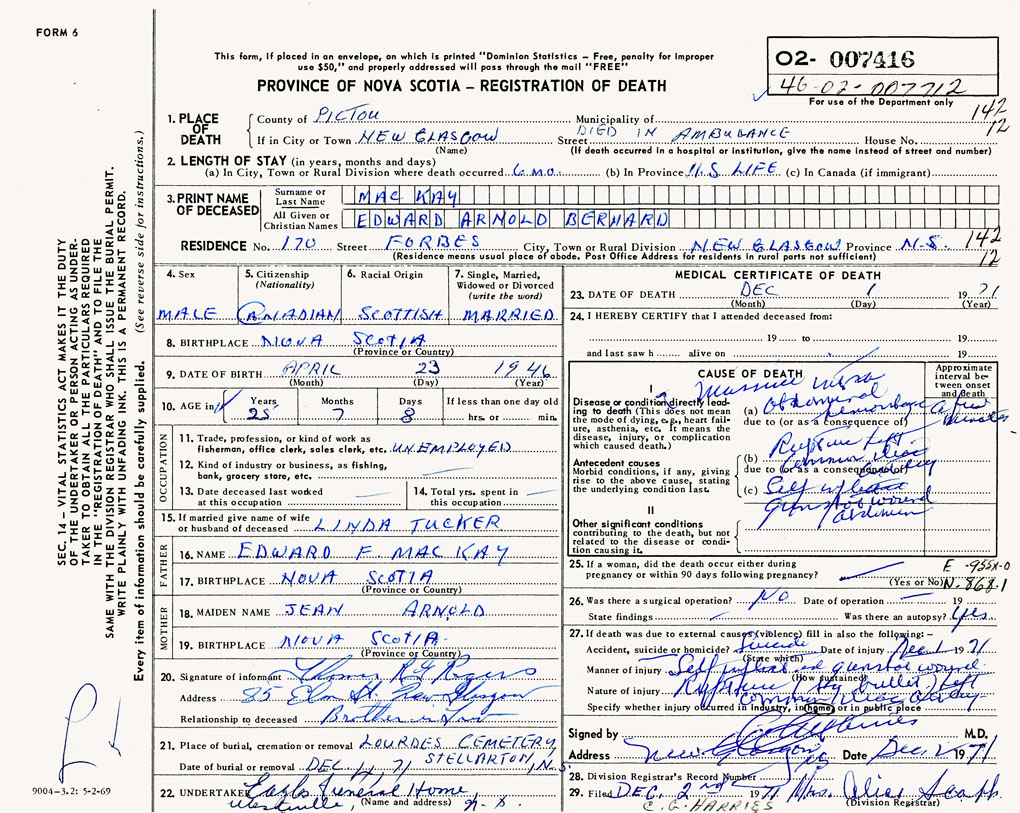 FORM 6
This form, if placed in an envelope, on which is printed "Dominion Statistics – Free, penalty for improper
use $50," and properly addressed will pass through the mail "FREE"
PROVINCE OF NOVA SCOTIA – REGISTRATION OF DEATH
02- 007416
46-02-007712
For use of the Department only
142
12
1. PLACE OF DEATH
County of PICTOU Municipality of
If in City or Town NEW GLASGOW Street DIED IN AMBULANCE House No.
(Name) (If death occurred in a hospital or institution, give the name instead of street and number)
2. LENGTH OF STAY (in years, months and days)
(a) In City, Town or Rural Division where death occurred 6 MO. (b) In Province N.S LIFE (c) In Canada (if immigrant)
3. PRINT NAME OF DECEASED
Surname or Last Name MAC KAY
All Given or Christian Names EDWARD ARNOLD BERNARD
RESIDENCE No. 170 Street FORBES City, Town or Rural Division NEW GLASGOW Province N.S. 142
12
(Residence means usual place of abode. Post Office Address for residents in rural parts not sufficient)
4. Sex
MALE
5. Citizenship
(Nationality)
CANADIAN
6. Racial Origin
SCOTTISH
7. Single, Married,
Widowed or Divorced
(write the word)
MARRIED
8. BIRTHPLACE NOVA SCOTIA
(Province or Country)
9. DATE OF BIRTH APRIL 23 1946
(Month) (Day) (Year)
10. AGE in Years Months Days If less than one day old
25 7 8 hrs. or min.
OCCUPATION
11. Trade, profession, or kind of work as
fisherman, office clerk, sales clerk, etc. UNEMPLOYED
12. Kind of industry or business, as fishing,
bank, grocery store, etc.
13. Date deceased last worked
at this occupation
14. Total yrs. spent in
this occupation
15. If married give name of wife
or husband of deceased LINDA TUCKER
FATHER
16. NAME EDWARD F. MAC KAY
17. BIRTHPLACE NOVA SCOTIA
(Province or Country)
MOTHER
18. MAIDEN NAME JEAN ARNOLD
19. BIRTHPLACE NOVA SCOTIA
(Province or Country)
20. Signature of informant Thomas Rogers
Address 85 Elm St. New Glasgow
Relationship to deceased Brother in Law
21. Place of burial, cremation or removal LOURDES CEMETERY
STELLARTON, N.S.
Date of burial or removal DEC. 4, 71
22. UNDERTAKER Funeral Home
Westville, N.S.
(Name and address)
MEDICAL CERTIFICATE OF DEATH
23. DATE OF DEATH DEC 1 1971
(Month) (Day) (Year)
24. I HEREBY CERTIFY that I attended deceased from:
19 to 19
and last saw h alive on 19
CAUSE OF DEATH
Approximate interval between onset and death
I
Disease or condition directly leading to death (This does not
mean the mode of dying, e.g., heart failure,
asthenia, etc. It means the
disease, injury, or complication
which caused death.)
Massive intra
(a) abdominal
hemorrhage a few
minutes
due to (or as a consequence of)
Antecedent causes
Morbid conditions, if any, giving
rise to the above cause, stating
the underlying condition last.
(b) Rupture left
common iliac
artery
due to (or as a consequence of)
(c) Self inflicted
gunshot wound
abdomen
II
Other significant conditions
contributing to the death, but not
related to the disease or condition
causing it.
25. If a woman, did the death occur either during
pregnancy or within 90 days following pregnancy?
(Yes or No)
E-955X-0
N-868.1
26. Was there a surgical operation? NO Date of operation 19
State findings Was there an autopsy? Yes
27. If death was due to external causes (violence) fill in also the following:–
Accident, suicide or homicide? Suicide Date of injury Dec 1 1971
(State which)
Manner of injury Self inflicted gunshot wound
(How sustained)
Nature of injury Rupture (by bullet) left
common iliac artery
Specify whether injury occurred in industry, in home, or in public place
Signed by M.D.
Address New Glasgow NS Date Dec. 2 1971
28. Division Registrar's Record Number
29. Filed DEC. 2nd 1971 Mrs. Alice
C. G. HARRIES
(Division Registrar)
SEC. 14 – VITAL STATISTICS ACT MAKES IT THE DUTY
OF THE UNDERTAKER OR PERSON ACTING AS UNDER-
TAKER TO OBTAIN ALL THE PARTICULARS REQUIRED
IN THE "REGISTRATION OF DEATH" AND TO FILE THE
SAME WITH THE DIVISION REGISTRAR WHO SHALL ISSUE THE BURIAL PERMIT.
WRITE PLAINLY WITH UNFADING INK. THIS IS A PERMANENT RECORD.
Every item of information should be carefully supplied. (See reverse side for instructions.)
9004–3.2: 5-2-69